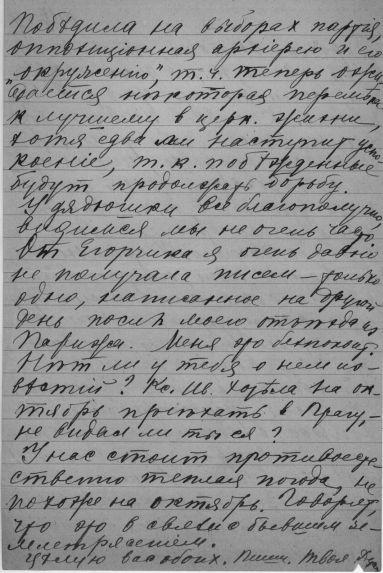 Победила на выборах партія,
оппозиціонная архіерею и его
„окруженію", т. ч. теперь ожи
дается некоторая перемѣна
к лучшему в церк. жизни,
хотя едва ли наступит успо
коеніе, т. к. побѣжденные
будут продолжать борьбу.
У дядюшки все благополучно,
видимся мы не очень часто.
От Егорчика я очень давно
не получала писем – только
одно, написанное на другой
день послѣ моего отъѣзда из
Парижа. Меня это безпокоит.
Нѣт ли у тебя о нем из-
вѣстій? Кс. Ив. хотѣла на ок-
тябрь пріѣхать в Прагу,
не видал ли ты ея?
У нас стоит противоесте
ственно теплая погода, не
похоже на октябрь. Говорят
что это в связи с бывшим зе-
млетрясеніем.
Цѣлую вас обоих. Пиши. Твоя